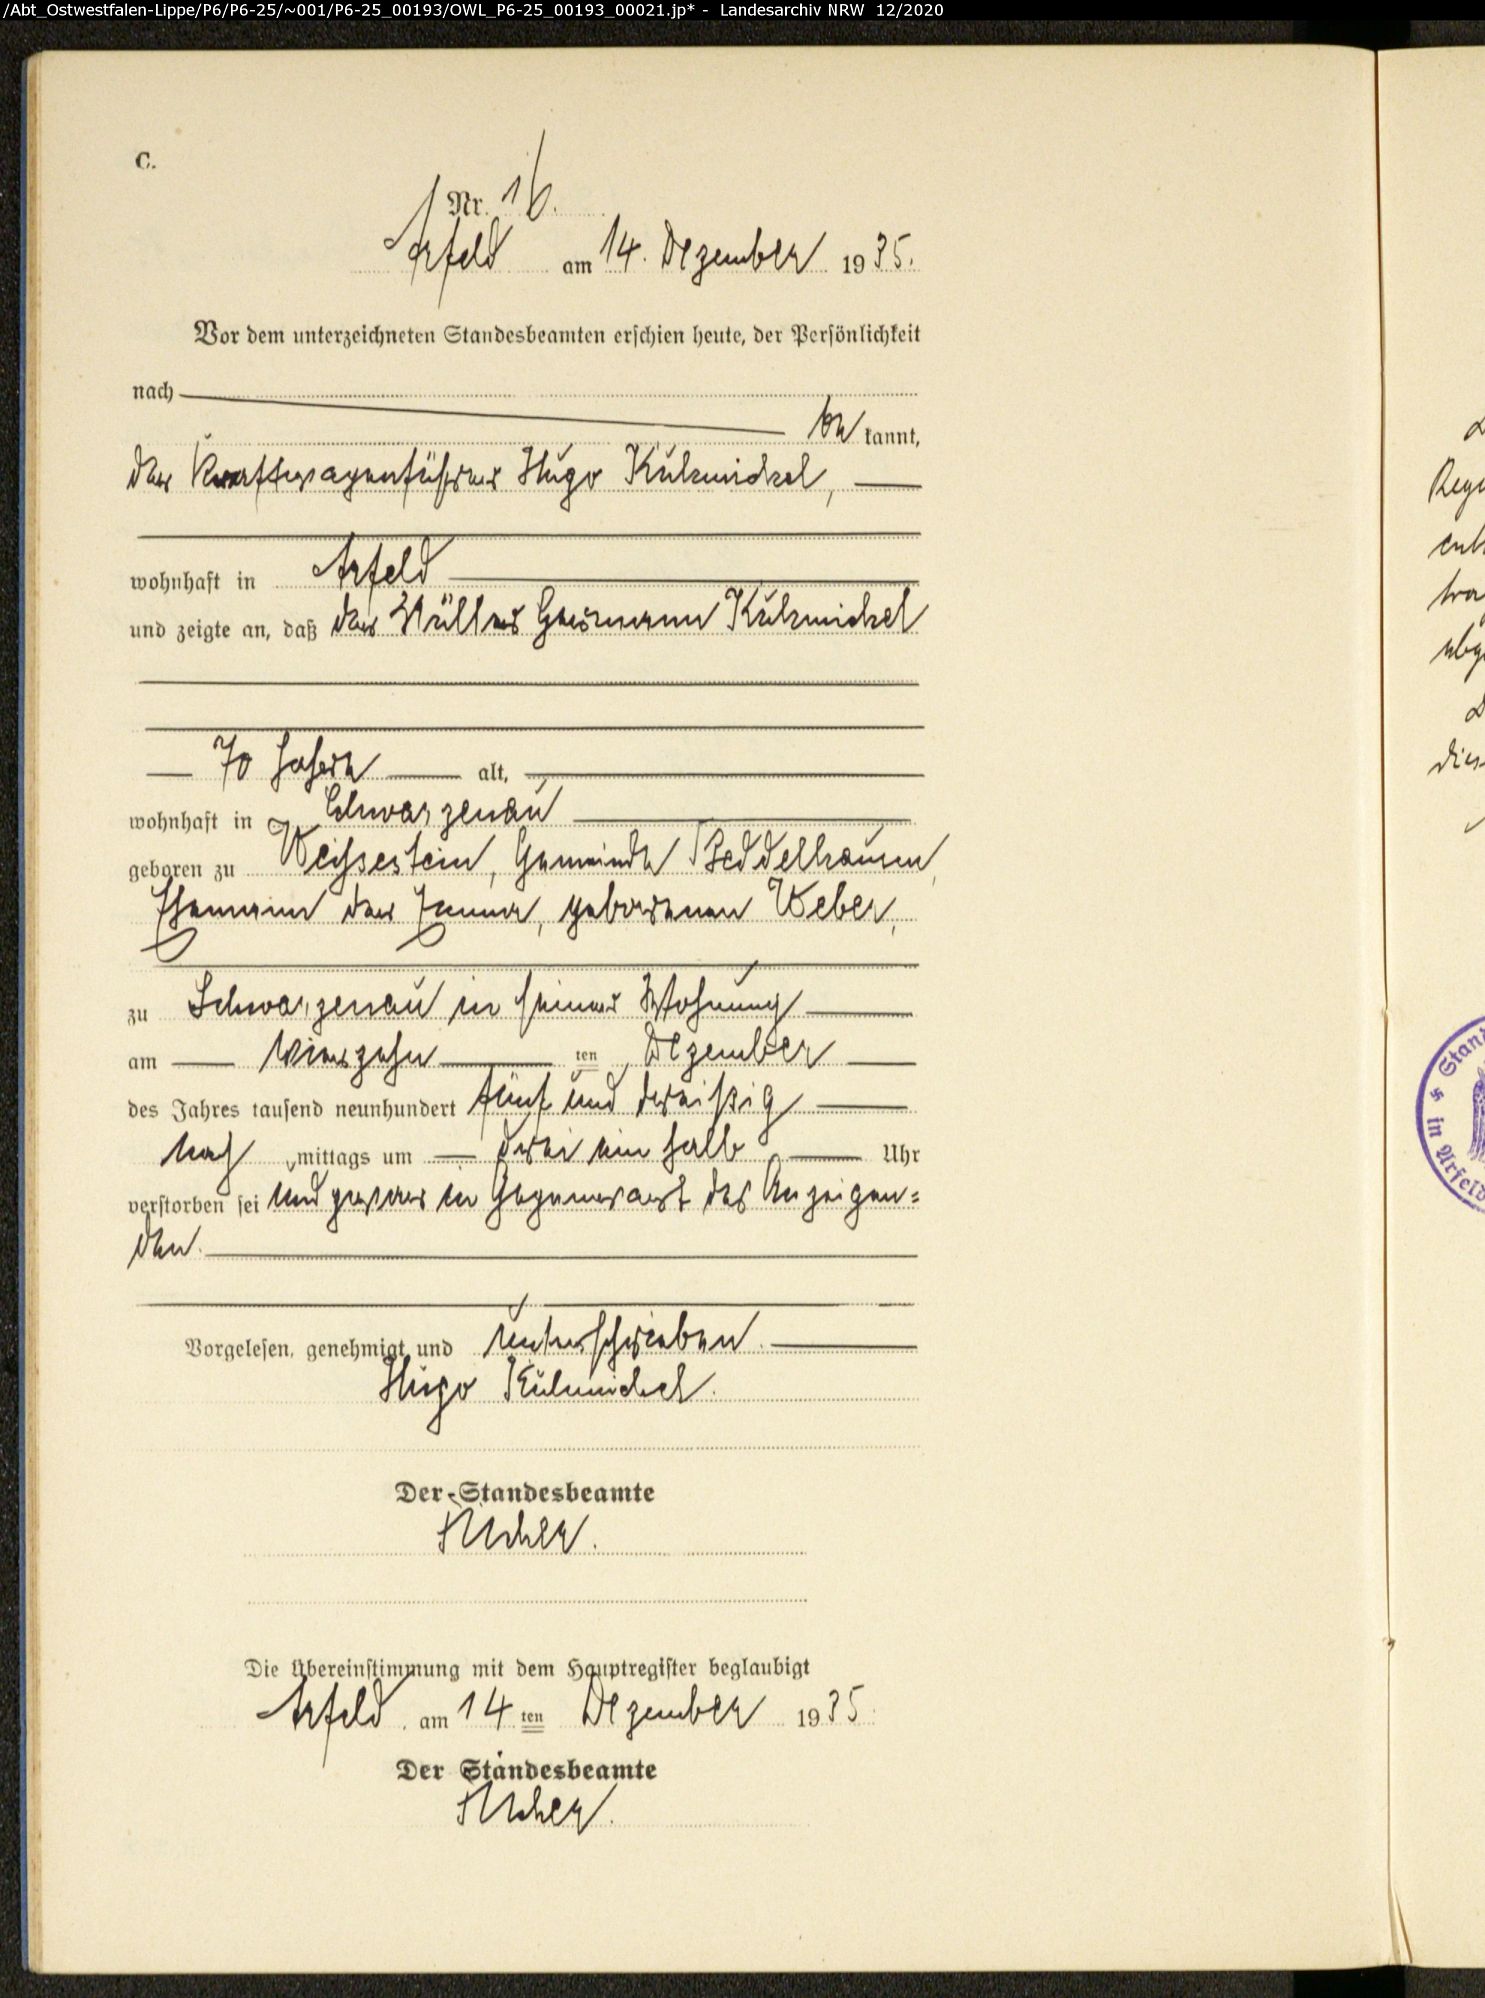 /Abt_Ostwestfalen-Lippe/P6/P6-25/~001/P6-25_00193/OWL_P6-25_00193_00021.jp* - Landesarchiv NRW 12/2020
C.
Nr. 16.
Arfeld am 14. Dezember 1935.
Vor dem unterzeichneten Standesbeamten erschien heute, der Persönlichkeit
nach
be kannt,
der Kraftwagenführer Hugo Kuhmichel,
wohnhaft in Arfeld
und zeigte an, daß der Müller Hermann Kuhmichel
70 Jahre alt,
wohnhaft in Schwarzenau
geboren zu Weihsestein, Gemeinde Beddelhausen,
Ehemann der Emma, geborenen Weber,
zu Schwarzenau in seiner Wohnung
am vierzehn ten Dezember
des Jahres tausend neunhundert fünf und dreißig
nach mittags um drei ein halb Uhr
verstorben sei und zwar in Gegenwart des Anzeigen=
den.
Vorgelesen, genehmigt und unterschrieben.
Hugo Kuhmichel.
Der Standesbeamte
Die Übereinstimmung mit dem Hauptregister beglaubigt
Arfeld, am 14 ten Dezember 1935.
Der Standesbeamte
in Arfeld